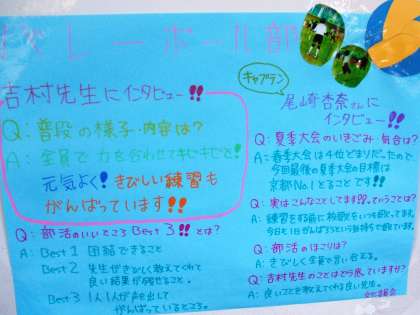 バレーボール部
吉村先生にインタビュー!!
Q:普段の様子・内容は?
A:全員で力を合わせてキビキビと!
元気よく!きびしい練習も
がんばっています!!
Q:部活のいいところBest3!!とは?
A:Best1 団結できること
Best2 先生がきびしく教えてくれて
良い結果が残せること。
Best3 1人1人が声を出して
がんばっているところ。
キャプテン
尾崎杏奈さんに
インタビュー!!
Q:夏季大会のいきごみ・気合は?
A:春季大会は4位どまりだったので
今回最後の夏季大会の目標は
京都No.1とることです!!
Q:実はこんなことしてます!!っていうことは?
A:練習をする前に
Q:部活のほこりは?
A:きびしく全員で言い合える。
Q:吉村先生のことはどう思っていますか?
A:良いことを教えてくれる良い先生。